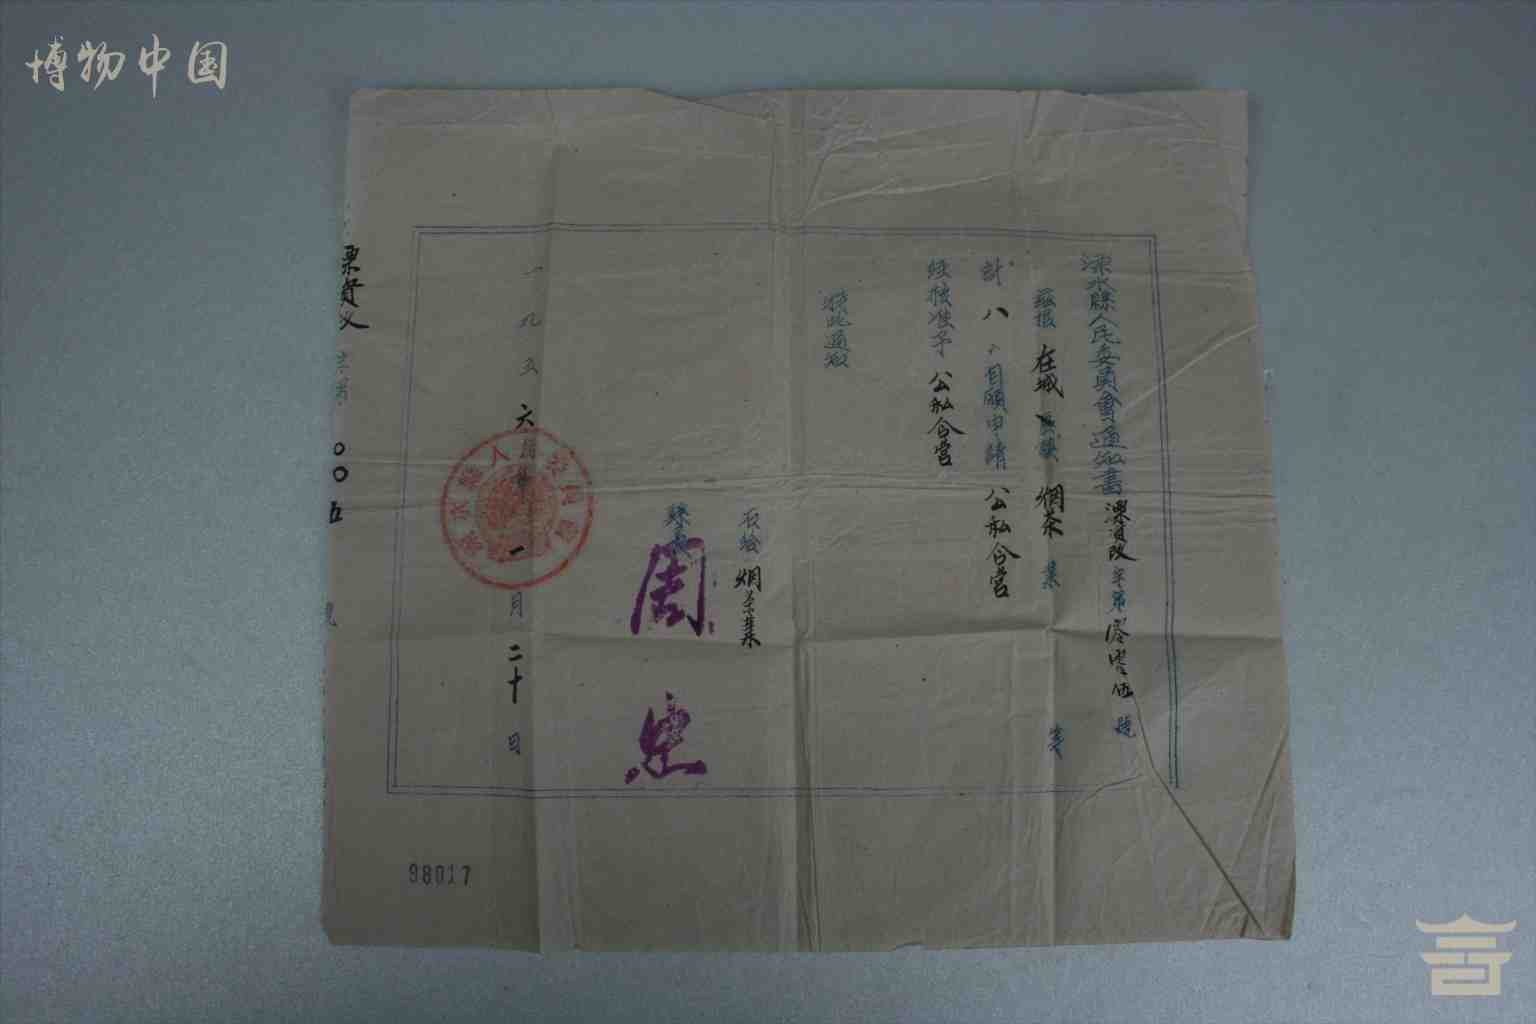 博物中国
溧水縣人民委員會通知書 溧資改字第零零伍號
茲据 在城 區鎮 烟茶 業 等
計 八 户自願申請 公私合营
经核准予 公私合营
特此通知
右给 烟茶業
縣長 周忠
一九五六 年 一 月 二十 日
字第 〇〇五 號
98017